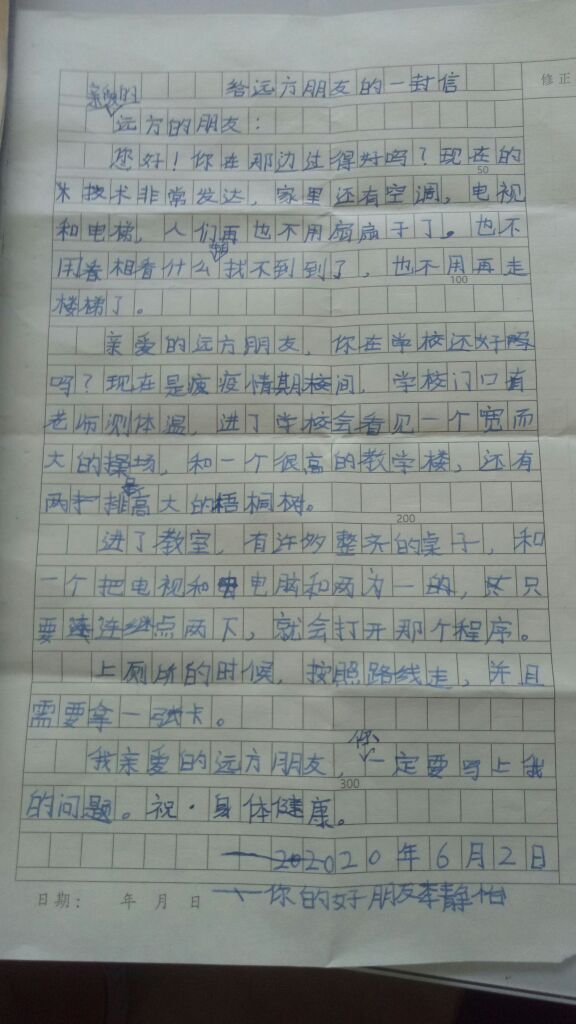 给远方朋友的一封信
修正
亲爱的
远方的朋友：
您好！你在那边过得好吗？现在的
50
技术非常发达，家里还有空调，电视
和电梯，人们再也不用扇扇子了。也不
用卷相看什么找不到到了，也不用再走
100
楼梯了。
亲爱的远方朋友，你在学校还好吗
吗？现在是疫疫情期间，学校门口有
老师测体温，进了学校会看见一个宽而
大的操场，和一个很高的教学楼，还有
两排高大的梧桐树。
200
进了教室，有许多整齐的桌子，和
一个把电视和电脑和两为一的，只
要连继点两下，就会打开那个程序。
上厕所的时候，按照路线走，并且
需要拿一张卡。
你
我亲爱的远方朋友，一定要写上我
300
的问题。祝·身体健康。
2020年6月2日
日期： 年 月 日
你的好朋友李静怡